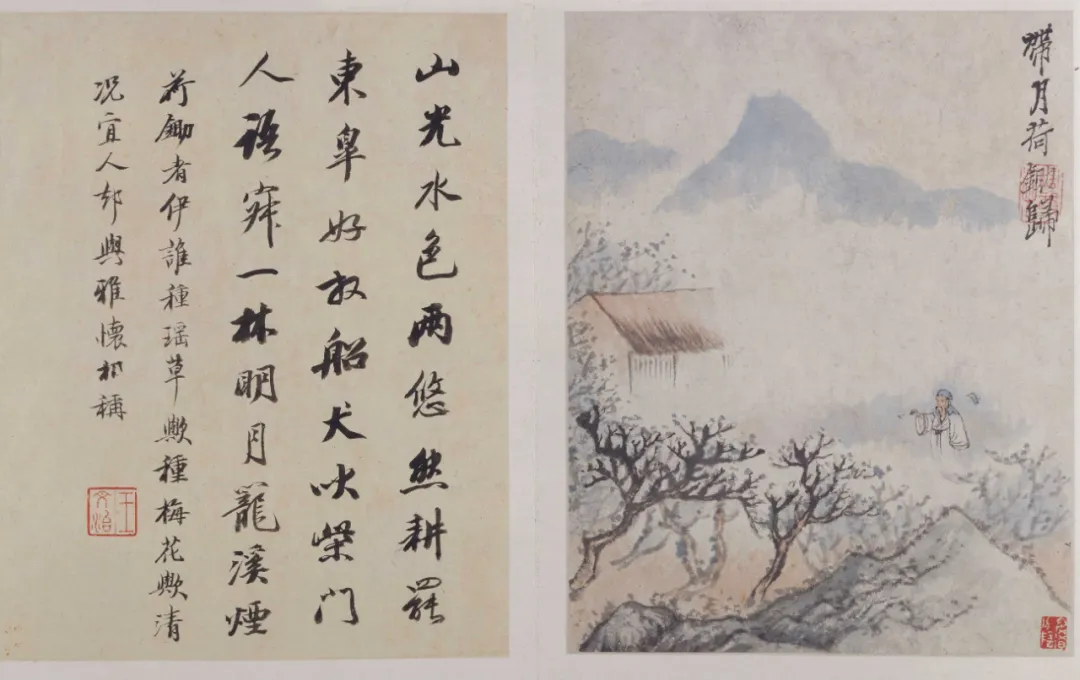 帶月荷鋤歸
山光水色兩悠然耕罷
東皐好放船犬吠柴門
人語寂一林明月籠溪煙
荷鋤者伊誰種瑤草歟種梅花歟清
況宜人却與雅懷相稱
王文治